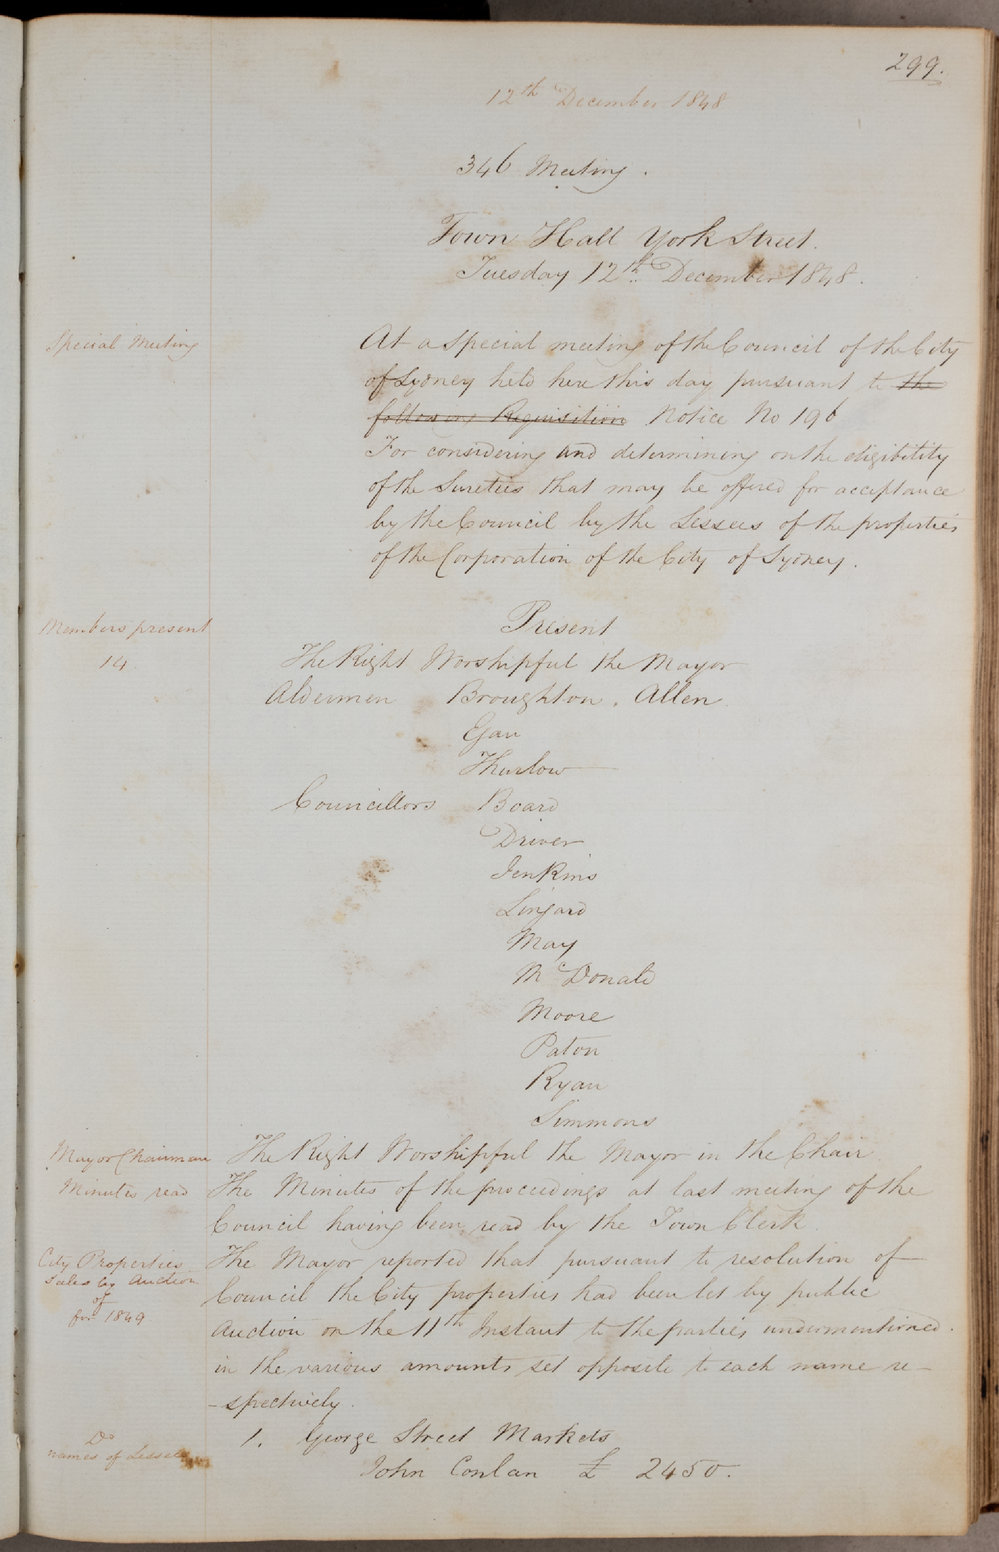 299.
12th December 1848
346 Meeting.
Town Hall York Street.
Tuesday 12th December 1848.
Special Meeting
At a special meeting of the Council of the City
of Sydney held here this day pursuant to the
following Requisition Notice No 196
For considering and determining on the eligibility
of the Sureties that may be offered for acceptance
by the Council by the Lessees of the properties
of the Corporation of the City of Sydney.
Members present
14.
Present
The Right Worshipful the Mayor
Aldermen Broughton. Allen
Egan
Thurlow
Councillors Board
Driver
Jenkins
Lingard
May
McDonald
Moore
Paton
Ryan
Simmons
Mayor Chairman
The Right Worshipful the Mayor in the Chair
Minutes read
The Minutes of the proceedings at last meeting of the
Council having been read by the Town Clerk
City Properties
Sales by Auction
of
for 1849
The Mayor reported that pursuant to resolution of
Council the City properties had been let by public
Auction on the 11th Instant to the parties undermentioned.
in the various amounts set opposite to each name re-
-spectively.
Do
names of Lessees
1. George Street Markets
John Conlan £ 2450.